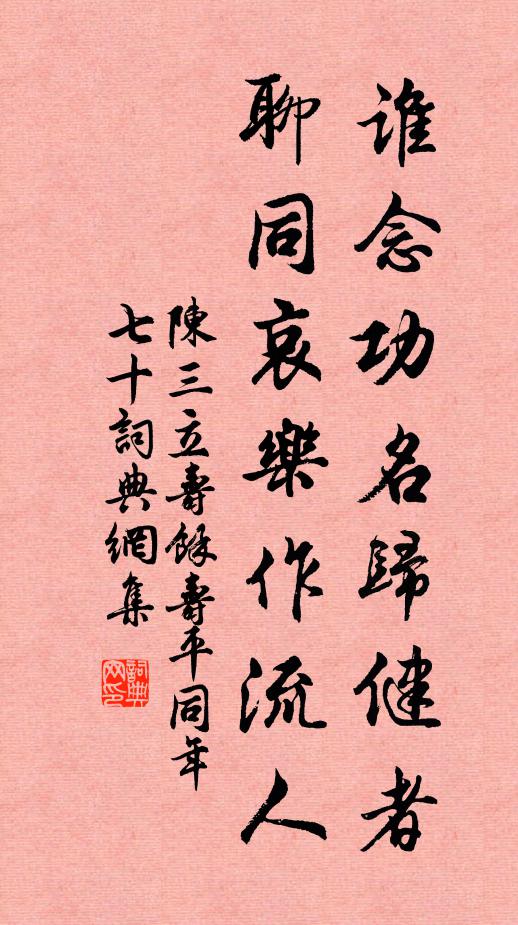 誰念功名歸健者
聊同哀樂作流人
陳三立壽餘壽平同年
七十詞典網集
詞典网印